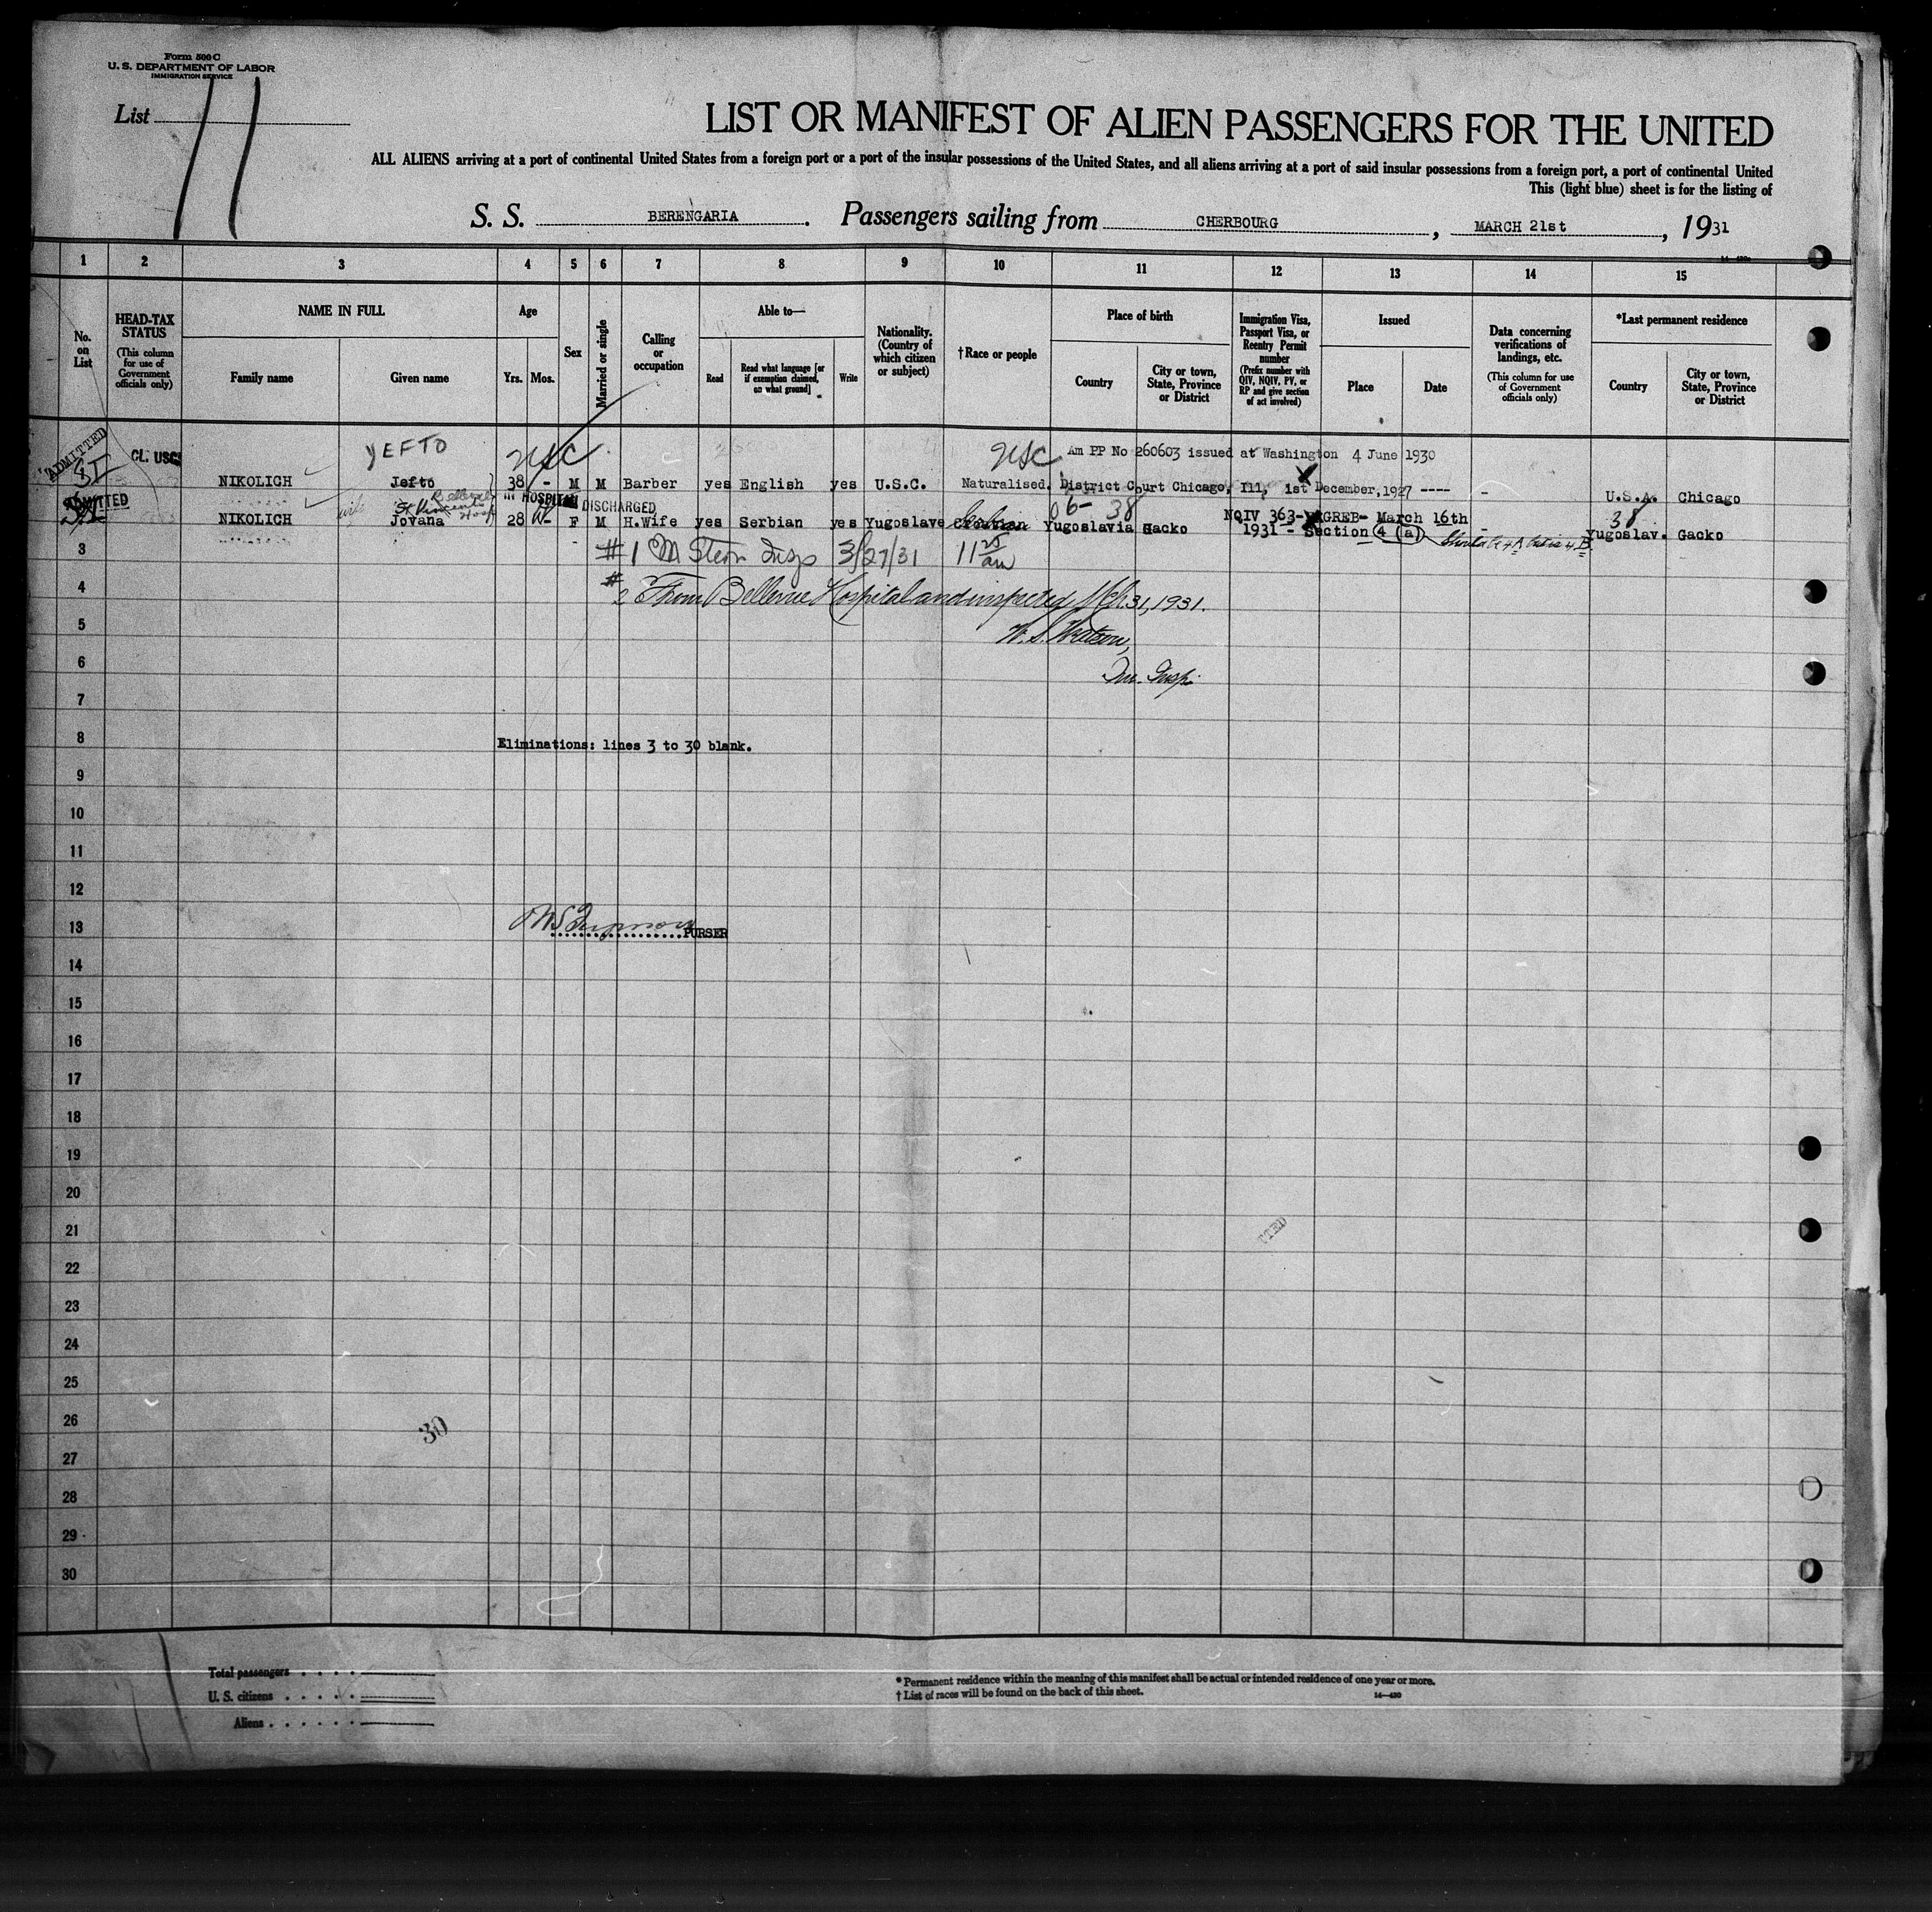 Form 500 C
U. S. DEPARTMENT OF LABOR
IMMIGRATION SERVICE
List 11
LIST OR MANIFEST OF ALIEN PASSENGERS FOR THE UNITED
ALL ALIENS arriving at a port of continental United States from a foreign port or a port of the insular possessions of the United States, and all aliens arriving at a port of said insular possessions from a foreign port, a port of continental United
This (light blue) sheet is for the listing of
S. S. BERENGARIA. Passengers sailing from CHERBOURG, MARCH 21st, 1931
1 2 3 4 5 6 7 8 9 10 11 12 13 14 15
No. on List
HEAD-TAX STATUS
(This column for use of Government officials only)
NAME IN FULL
Family name Given name
Age
Yrs. Mos.
Sex
Married or single
Calling or occupation
Able to—
Read Read what language [or if exemption claimed, on what ground] Write
Nationality. (Country of which citizen or subject)
†Race or people
Place of birth
Country City or town, State, Province or District
Immigration Visa, Passport Visa, or Reentry Permit number
(Prefix number with QIV, NQIV, PV, or RP and give section of act involved)
Issued
Place Date
Data concerning verifications of landings, etc.
(This column for use of Government officials only)
*Last permanent residence
Country City or town, State, Province or District
ADMITTED CL. USC YEFTO USC USC Am PP No 260603 issued at Washington 4 June 1930
SI NIKOLICH Jefto 38 - M M Barber yes English yes U.S.C. Naturalised, District Court Chicago, Ill, 1st December, 1927 ---- - U.S.A. Chicago
ADMITTED wife St Vincents Bellevue Hosp IN HOSPITAL DISCHARGED 06- 38 NQIV 363- ZAGREB- March 16th 38
NIKOLICH Jovana 28 - F M H.Wife yes Serbian yes Yugoslave Croatian Yugoslavia Gacko 1931 - Section 4 (a) - Yugoslav. Gacko
3 #1 M Stern Insp 3/27/31 11 25 am
4 #2 From Bellevue Hospital and inspected Mch 31, 1931.
5 W. S. Watson,
6 Imm. Insp.
7
8 Eliminations: lines 3 to 30 blank.
9
10
11
12
13 PURSER
14
15
16
17
18
19
20
21
22
23
24
25
26 30
27
28
29
30
Total passengers . . . .
U. S. citizens . . . . .
Aliens . . . . . .
* Permanent residence within the meaning of this manifest shall be actual or intended residence of one year or more.
† List of races will be found on the back of this sheet. 14—430